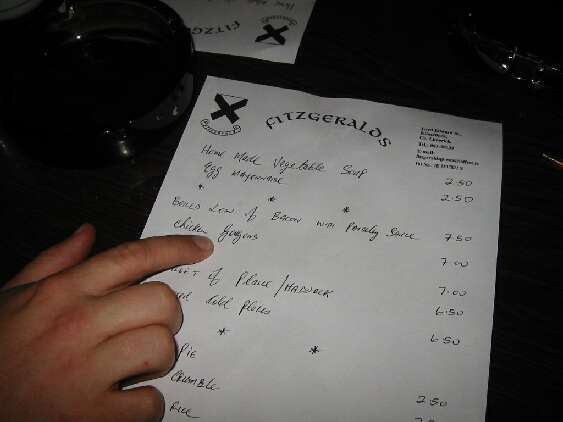 FITZGERALDS
FITZGERALDS
Co. Limerick
Home Made Vegetable Soup 2.50
Egg Mayonnaise 2.50
* * *
Boiled Loin of Bacon with Parsley Sauce 7.50
Chicken Goujons 7.00
of Plaice/Haddock 7.00
Cold Plates 6.50
* * 6.50
Pie
Crumble 2.50
Rice